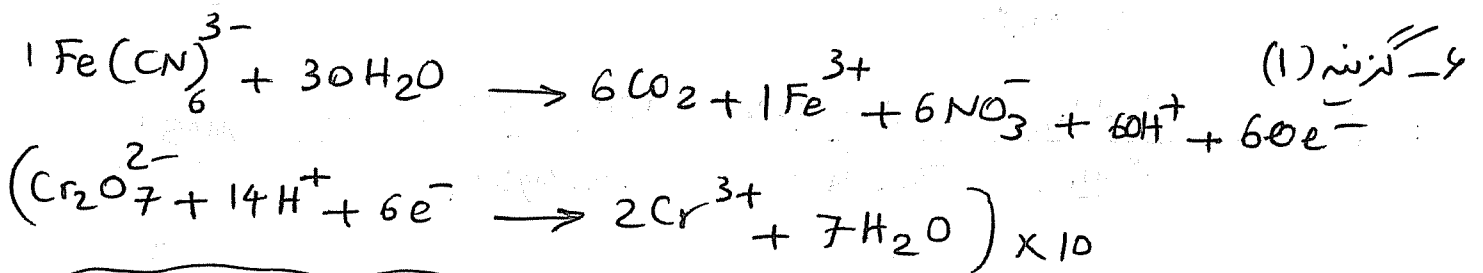 ۶_ گزینه (۱)
1 Fe(CN)₆³⁻ + 30H₂O → 6CO₂ + 1Fe³⁺ + 6NO₃⁻ + 60H⁺ + 60e⁻
(Cr₂O₇²⁻ + 14H⁺ + 6e⁻ → 2Cr³⁺ + 7H₂O) × 10